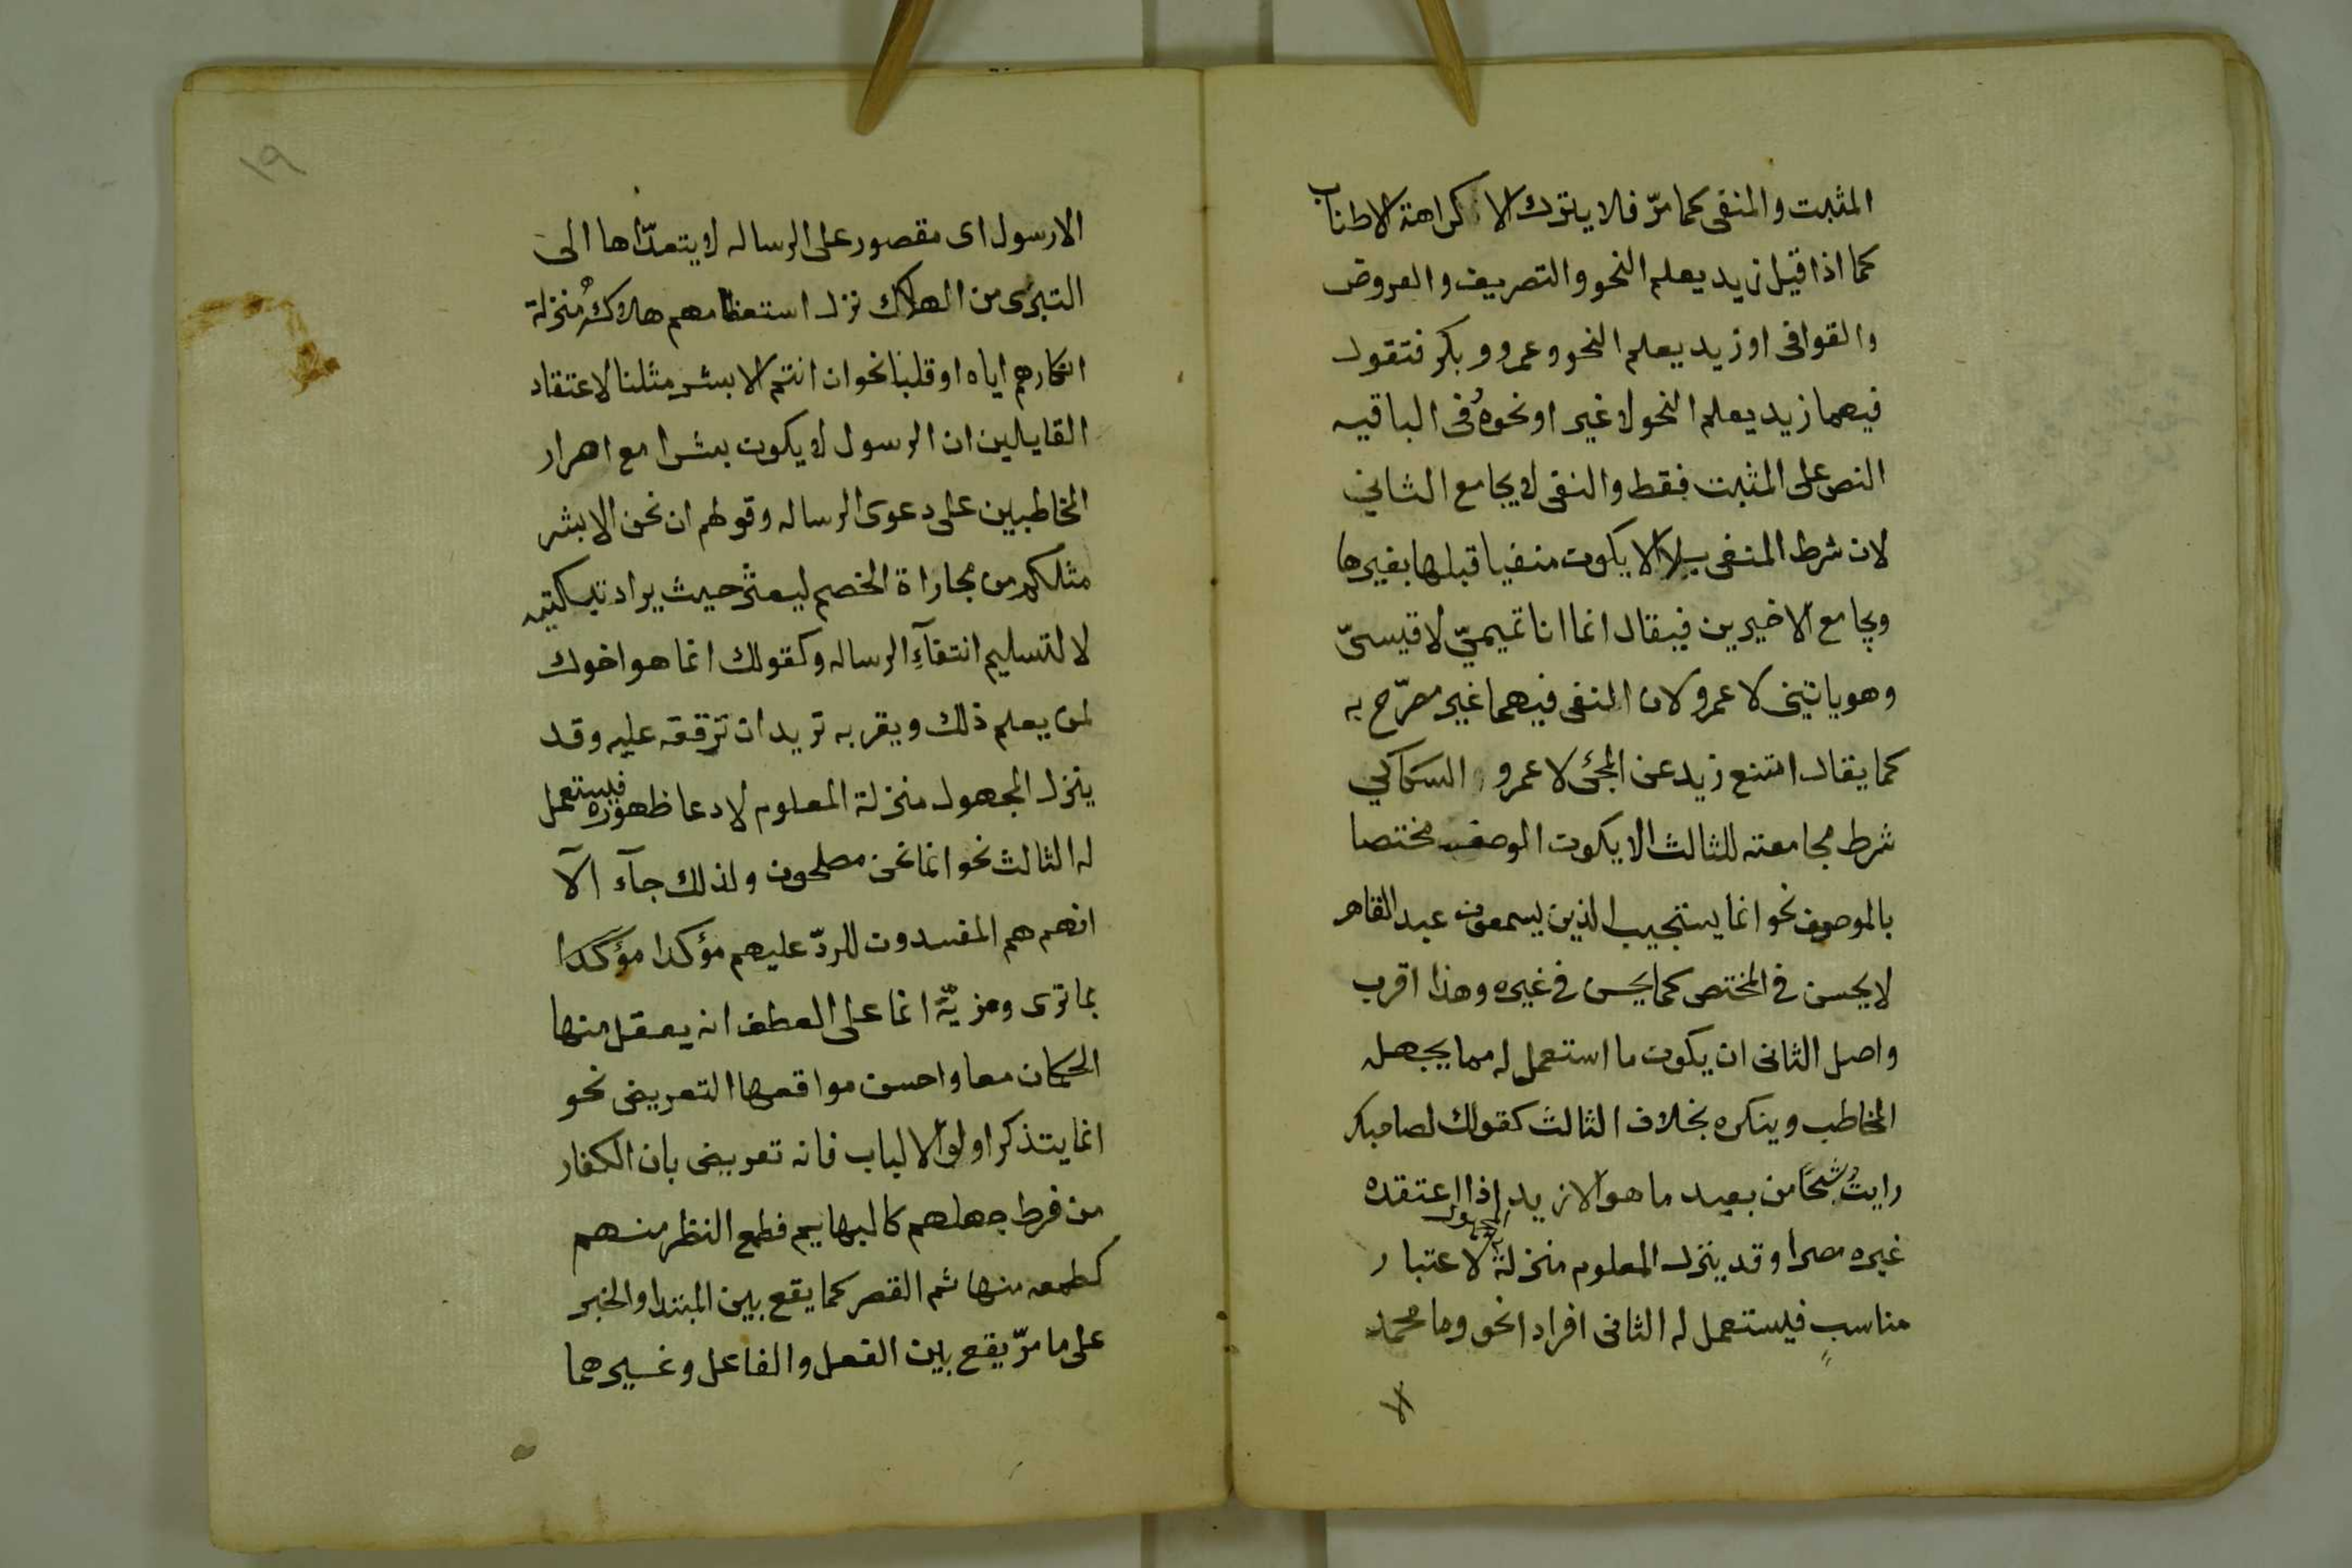 المثبت والمنفى كما مرّ فلا يترك الا كراهة الاطناب
كما اذا قيل زيد يعلم النحو والتصريف والعروض
والقوافى او زيد يعلم النحو وعمرو وبكر فتقول
فيهما زيد يعلم النحو لا غير او نحوه وفى الباقيه
النص على المثبت فقط والنفى لا يجامع الثانى
لان شرط المنفى بلا الا يكون منفيا قبلها بغيرها
ويجامع الاخيرين فيقال انما انا تميمىّ لا قيسىّ
وهو ياتينى لا عمرو لان النفى فيهما غير مصرّح به
كما يقال امتنع زيد عن المجئ لا عمرو السكاكي
شرط مجامعته للثالث الا يكون الوصف مختصا
بالموصوف نحو انما يستجيب الذين يسمعون عبد القاهر
لا يحسن فى المختص كما يحسن فى غيره وهذا اقرب
واصل الثانى ان يكون ما استعمل له مما يجهله
المخاطب وينكره بخلاف الثالث كقولك لصاحبك
رايت شبحًا من بعيد ما هو الا زيد اذا اعتقده
غيره مصرا وقد ينزل المعلوم منزلة المجهول لاعتبار
مناسبٍ فيستعمل له الثانى افرادا نحو وما محمد
الا
١٩
الا رسول اى مقصور على الرساله لا يتعدّاها الى
التبرّى من الهلاك نزل استعظامهم هلاكه منزلة
انكارهم اياه او قلبا نحو ان انتم الا بشر مثلنا لاعتقاد
القايلين ان الرسول لا يكون بشرا مع اصرار
المخاطبين على دعوى الرساله وقولهم ان نحن الا بشر
مثلكم من مجاراة الخصم ليعثر حيث يراد تبكيته
لا لتسليم انتفآءِ الرساله وكقولك انما هو اخوك
لمن يعلم ذلك ويقر به تريد ان ترققه عليه وقد
ينزل المجهول منزلة المعلوم لادعا ظهوره فيستعمل
له الثالث نحو انما نحن مصلحون ولذلك جآء الآ
انهم هم المفسدون للردّ عليهم مؤكدا مؤكّدا
بما ترى ومزيّة انما على العطف انه يعقل منها
الحكمان معا واحسن مواقعها التعريض نحو
انما يتذكر اولو الالباب فانه تعريض بان الكفار
من فرط جهلهم كالبهايم فطمع النظر منهم
كطمعه منها ثم القصر كما يقع بين المبتدا والخبر
على ما مرّ يقع بين الفعل والفاعل وغيرهما